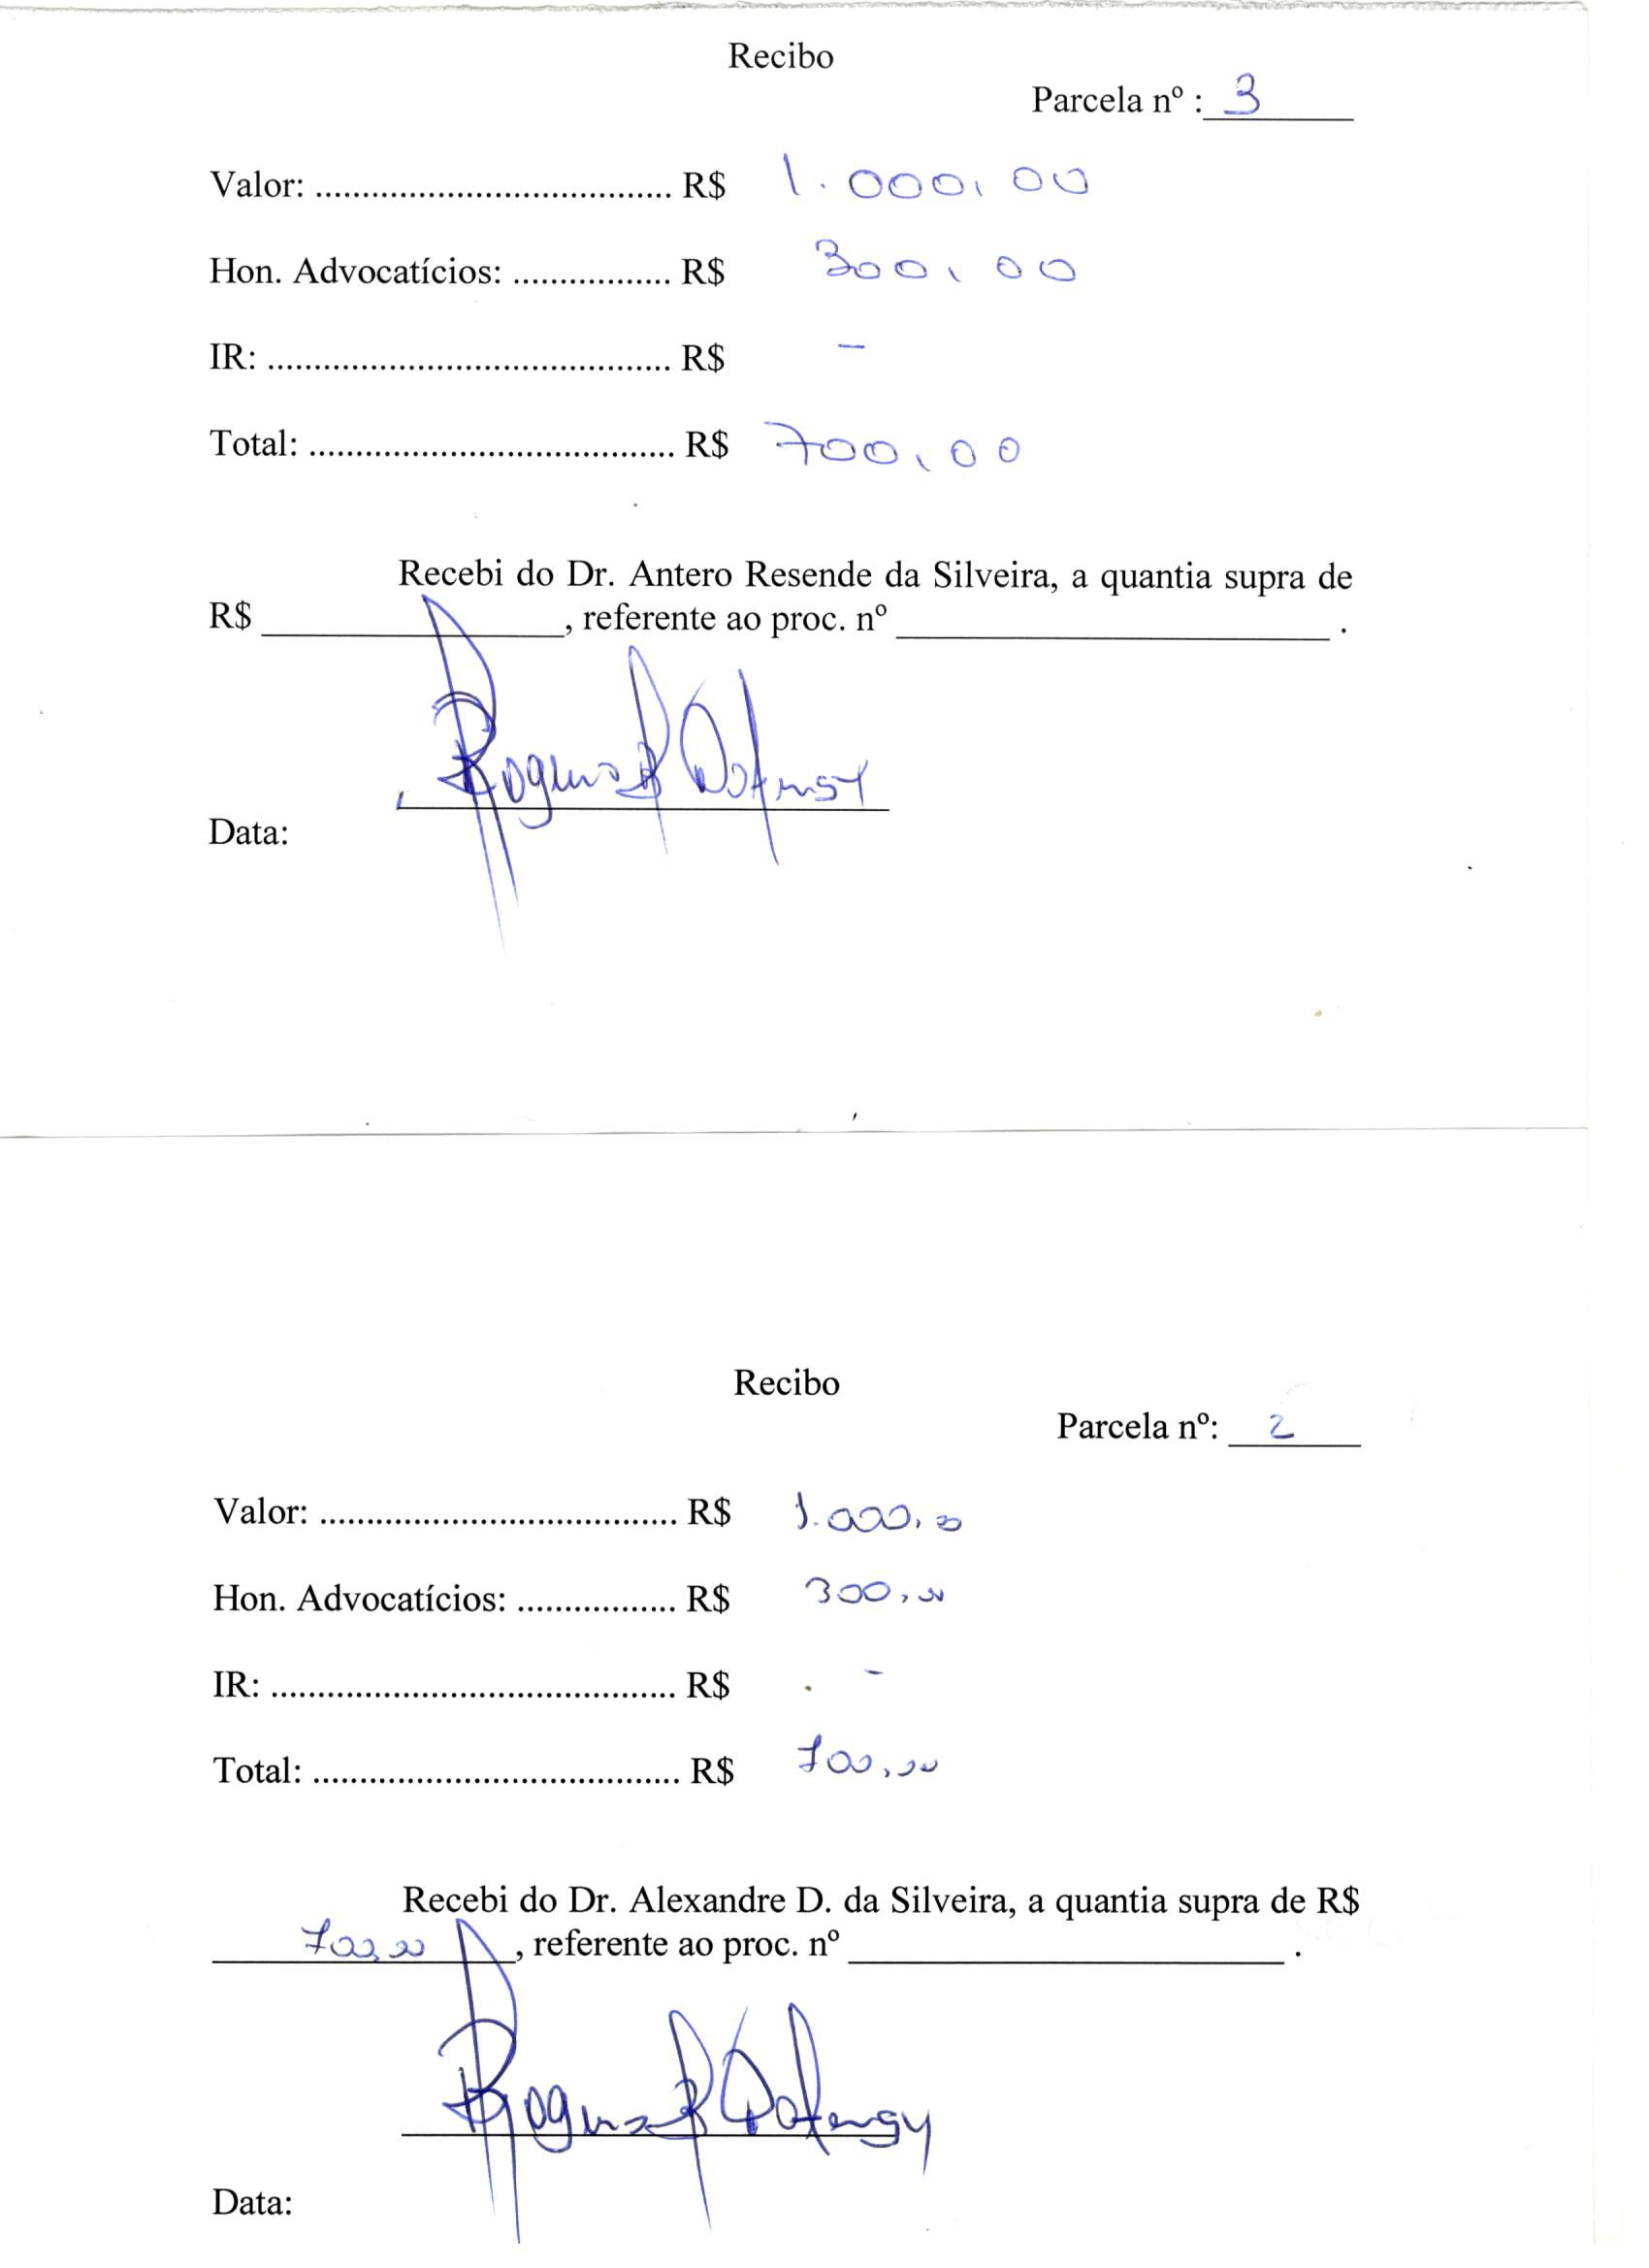 Recibo
Parcela nº : 3
Valor: ...................................... R$ 1.000,00
Hon. Advocatícios: ................. R$ 300,00
IR: ........................................... R$ -
Total: ....................................... R$ 700,00
Recebi do Dr. Antero Resende da Silveira, a quantia supra de
R$ ________________, referente ao proc. nº _______________________ .
Data:
Recibo
Parcela nº: 2
Valor: ...................................... R$ 1.000,00
Hon. Advocatícios: ................. R$ 300,00
IR: ........................................... R$ -
Total: ....................................... R$ 700,00
Recebi do Dr. Alexandre D. da Silveira, a quantia supra de R$
700,00, referente ao proc. nº _______________________ .
Data: